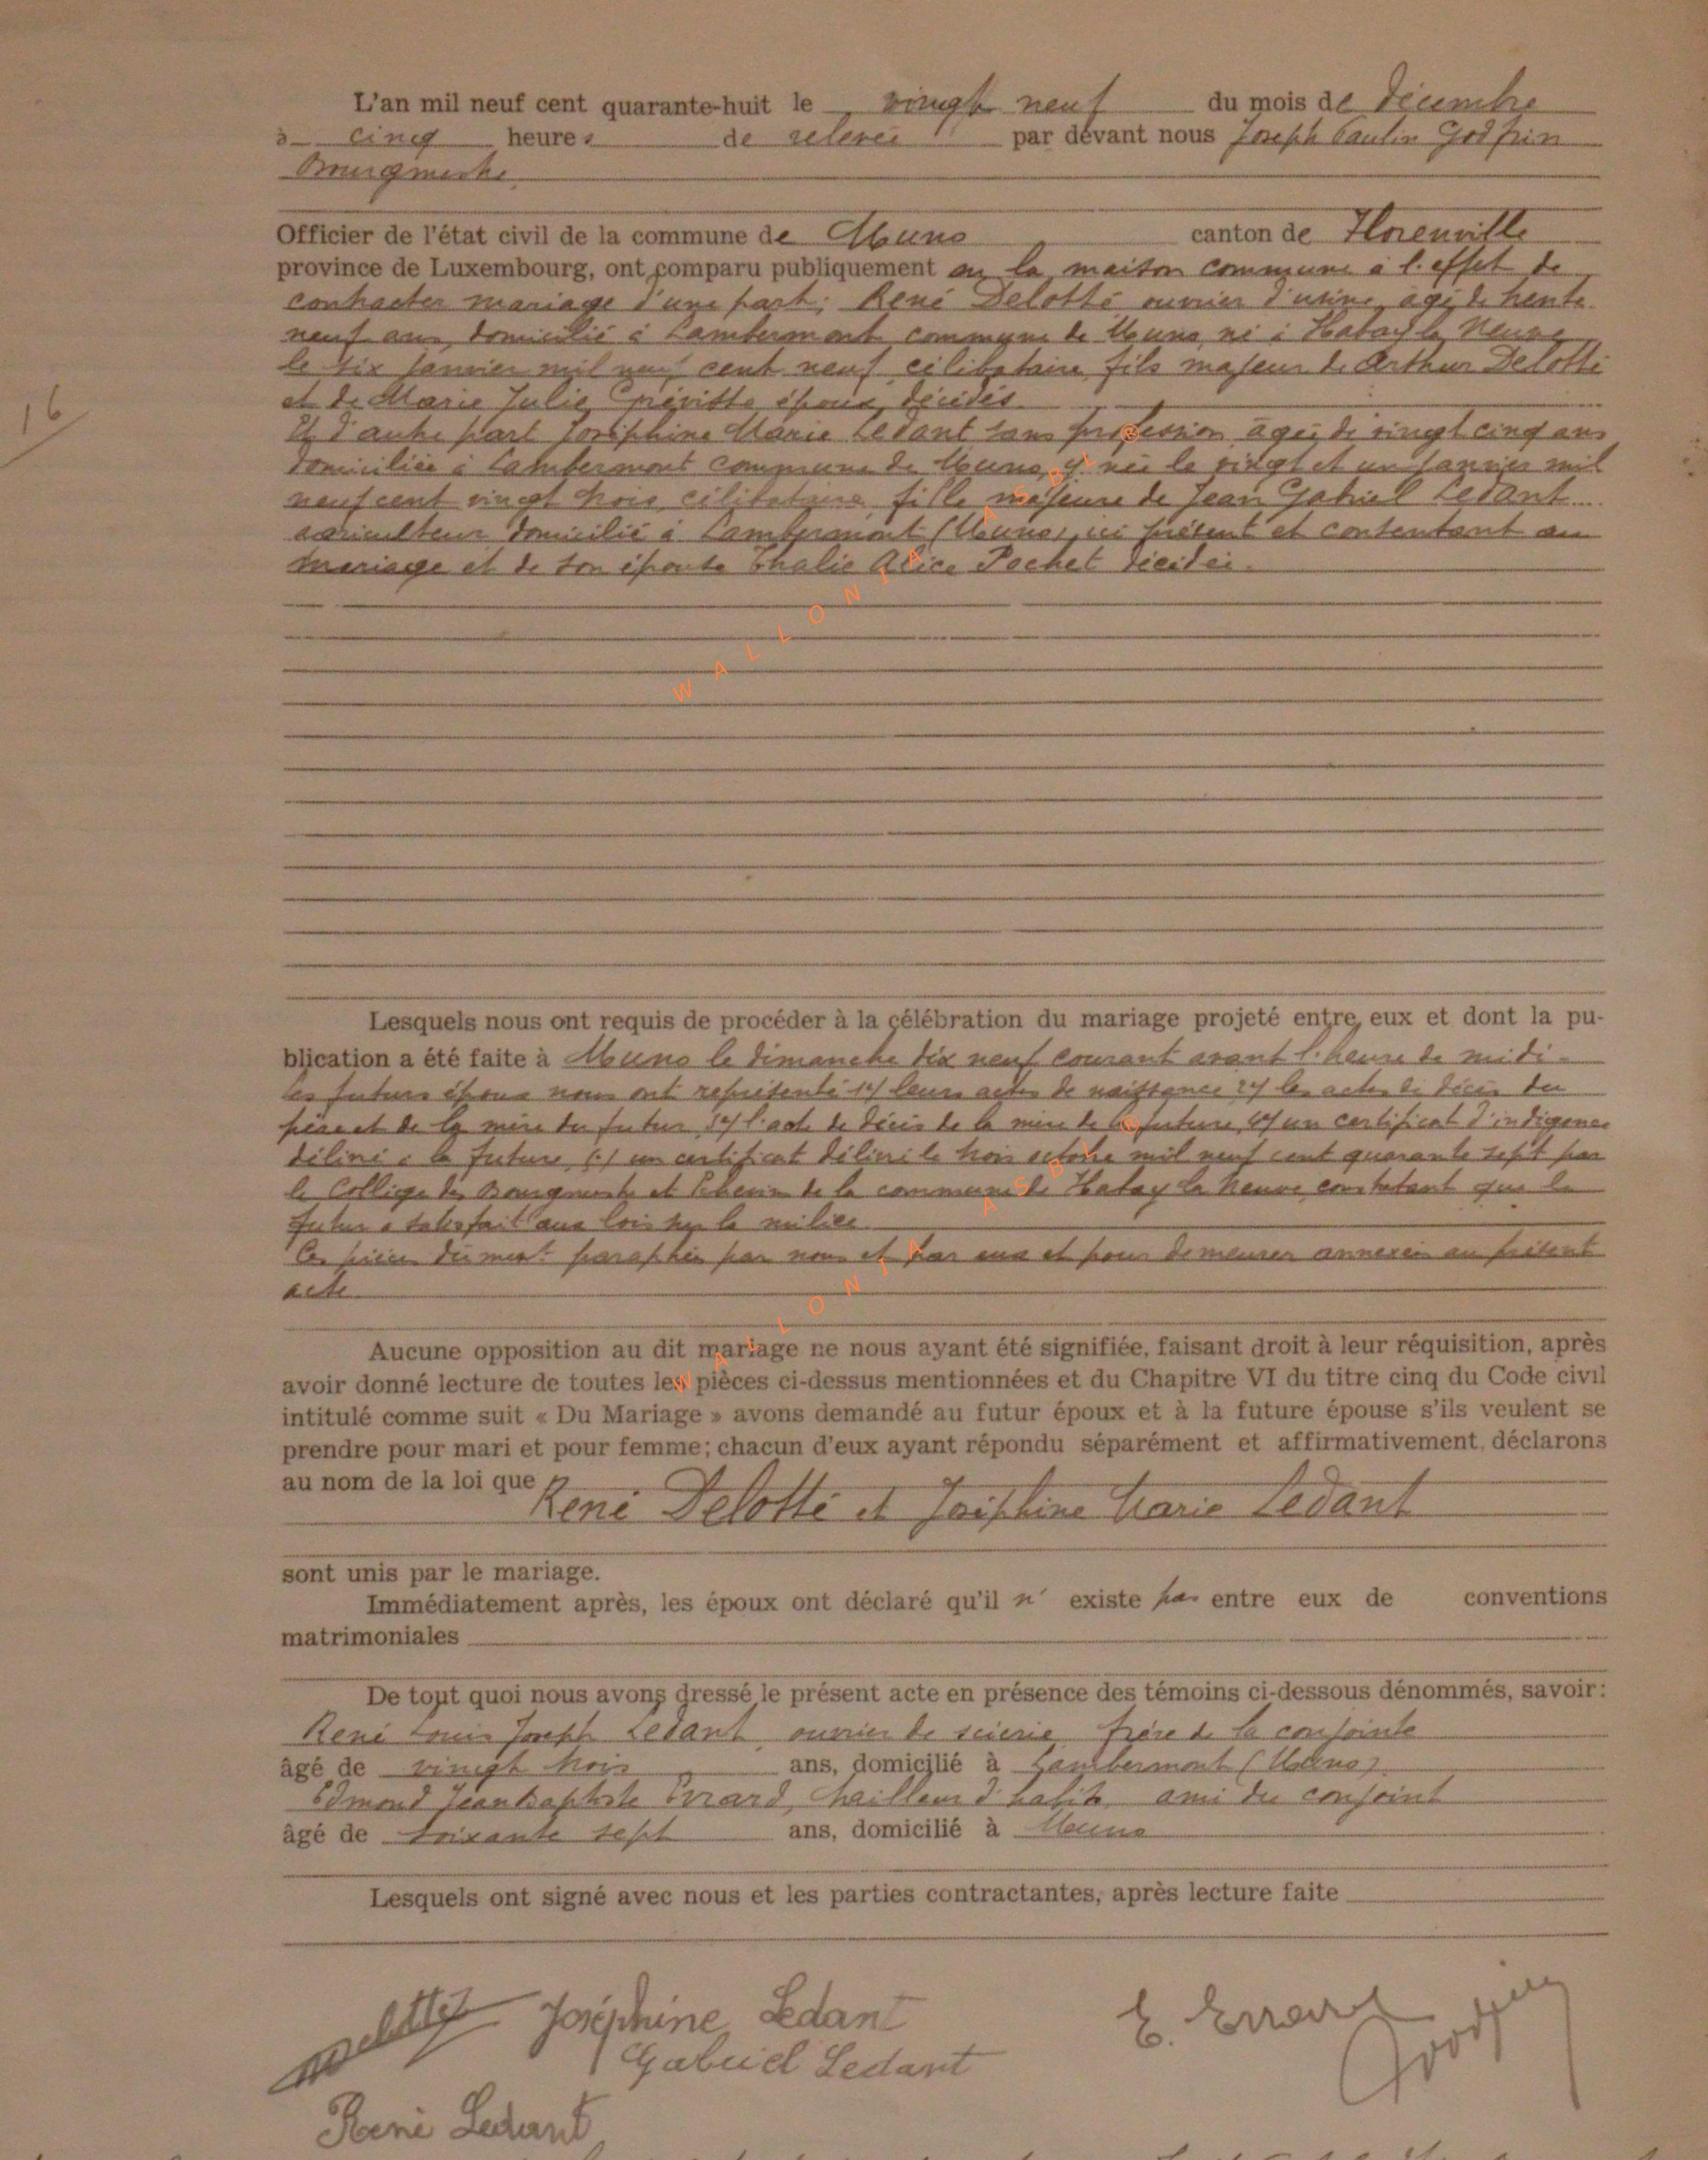 L'an mil neuf cent quarante-huit le vingt neuf du mois de décembre
à cinq heures de relevée par devant nous Joseph Paulin Godfrin
Bourgmestre
Officier de l'état civil de la commune de Muno canton de Florenville
province de Luxembourg, ont comparu publiquement en la maison commune à l'effet de
contracter mariage d'une part; René Delotté ouvrier d'usine, âgé de trente
neuf ans, domicilié à Lambermont commune de Muno, né à Habay la Neuve
le six janvier mil neuf cent neuf célibataire, fils majeur de Arthur Delotté
et de Marie Julie époux décédés.
16
Et d'autre part Joséphine Marie Ledant sans profession, âgée de vingt cinq ans
domiciliée à Lambermont commune de Muno, y née le vingt et un janvier mil
neuf cent vingt trois, célibataire, fille majeure de Jean Gabriel Ledant
agriculteur domicilié à Lambermont (Muno), ici présent et consentant au
mariage et de son épouse Alice Pochet décédée.
WALLONIA ASBL ®
Lesquels nous ont requis de procéder à la célébration du mariage projeté entre eux et dont la pu-
blication a été faite à Muno le dimanche dix neuf courant avant l'heure de midi -
les futurs époux nous ont représenté 1°/ leurs actes de naissance 2°/ les actes de décès du
père et de la mère du futur, 3°/ l'acte de décès de la mère de la future, 4°/ un certificat d'indigence
délivré à la future, 5°/ un certificat délivré le trois octobre mil neuf cent quarante sept par
le Collège des Bourgmestre et Echevins de la commune de Habay la Neuve, constatant que le
futur a satisfait aux lois sur la milice.
Ces pièces dûment paraphées par nous et par eux et pour demeurer annexées au présent
acte.
WALLONIA ASBL ®
Aucune opposition au dit mariage ne nous ayant été signifiée, faisant droit à leur réquisition, après
avoir donné lecture de toutes les pièces ci-dessus mentionnées et du Chapitre VI du titre cinq du Code civil
intitulé comme suit « Du Mariage » avons demandé au futur époux et à la future épouse s'ils veulent se
prendre pour mari et pour femme; chacun d'eux ayant répondu séparément et affirmativement, déclarons
au nom de la loi que René Delotté et Joséphine Marie Ledant
sont unis par le mariage.
Immédiatement après, les époux ont déclaré qu'il n' existe pas entre eux de conventions
matrimoniales
De tout quoi nous avons dressé le présent acte en présence des témoins ci-dessous dénommés, savoir:
René Louis Joseph Ledant, ouvrier de scierie, frère de la conjointe
âgé de vingt trois ans, domicilié à Lambermont (Muno).
Edmond Jean Baptiste Evrard, tailleur d'habits, ami du conjoint
âgé de soixante sept ans, domicilié à Muno
Lesquels ont signé avec nous et les parties contractantes, après lecture faite
Joséphine Ledant E. Evrard Godfrin
Gabriel Ledant
René Ledant